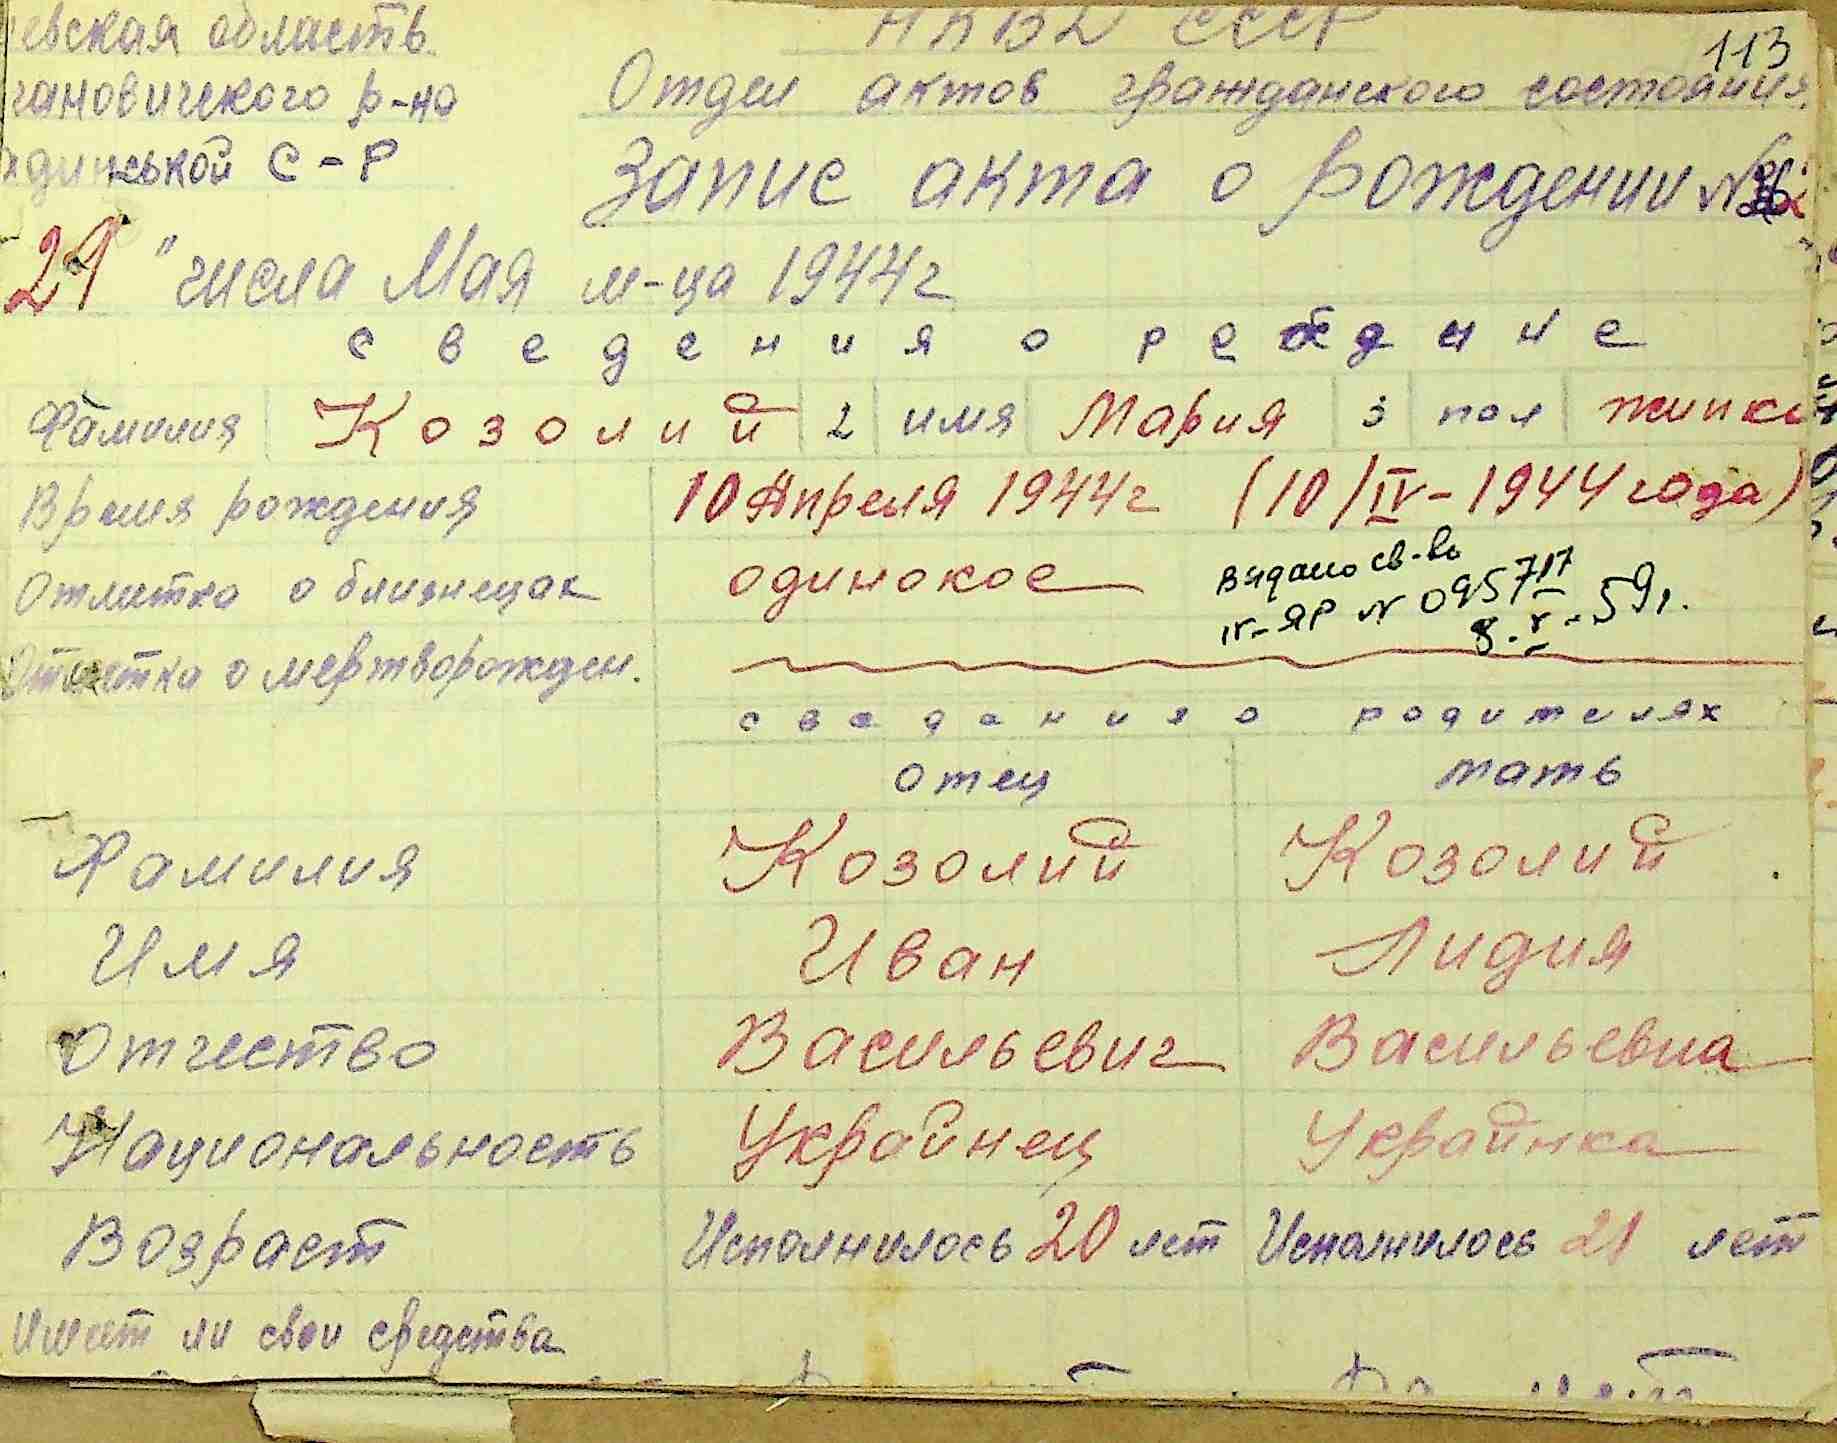 евская область НКВД СССР 113
гановического р-на Отдел актов гражданского состояния
динськой С-Р Запис акта о рождении №
29 " числа Мая м-ца 1944г
сведения о рождение
Фамилия Козолий 2 имя Мария 3 пол
Время рождения 10 Апреля 1944г (10/IV-1944 года)
Отметка о близнецах одинокое Видано св-во
IV-ЯР N 095717
8-V-59г.
Отметка о мертворожден.
сведания о родителях
отец мать
Фамилия Козолий Козолий
Имя Иван Лидия
Отчество Васильевич Васильевна
Национальность Украйнец Украйнка
Возраст Исполнилось 20 лет Исполнилось 21 лет
Имеет ли свои средства